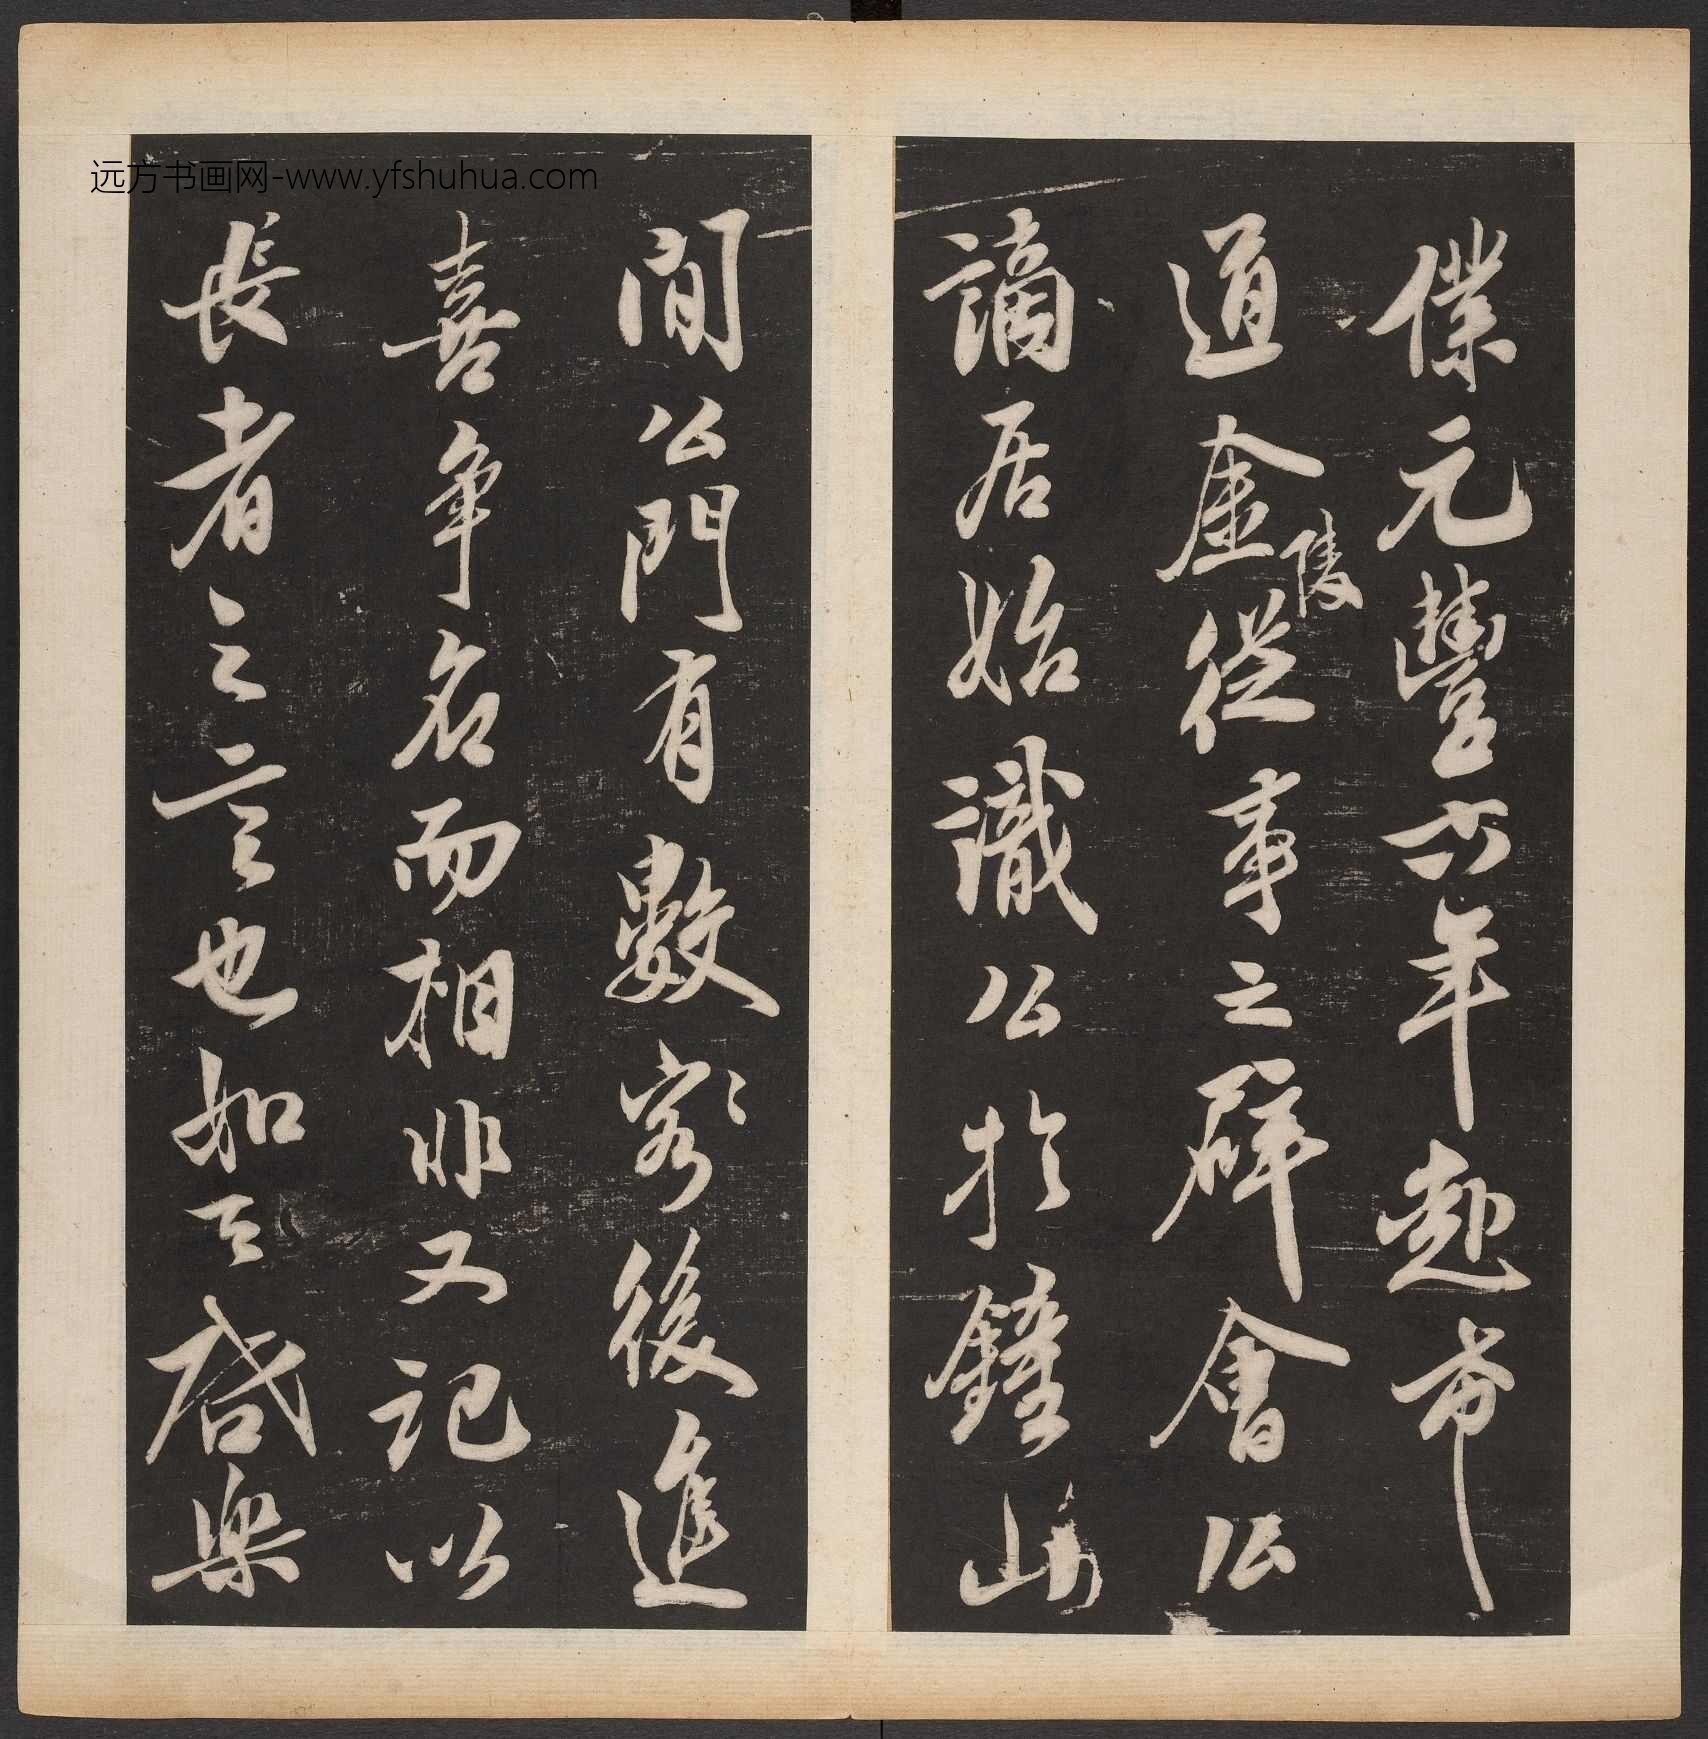 僕元豐六年赴希
道金陵從事之辟會公
謫居始識公於鐘山
間公門有數客後進
喜爭名而相非又記以
長者之言也如云啓樂
远方书画网-www.yfshuhua.com